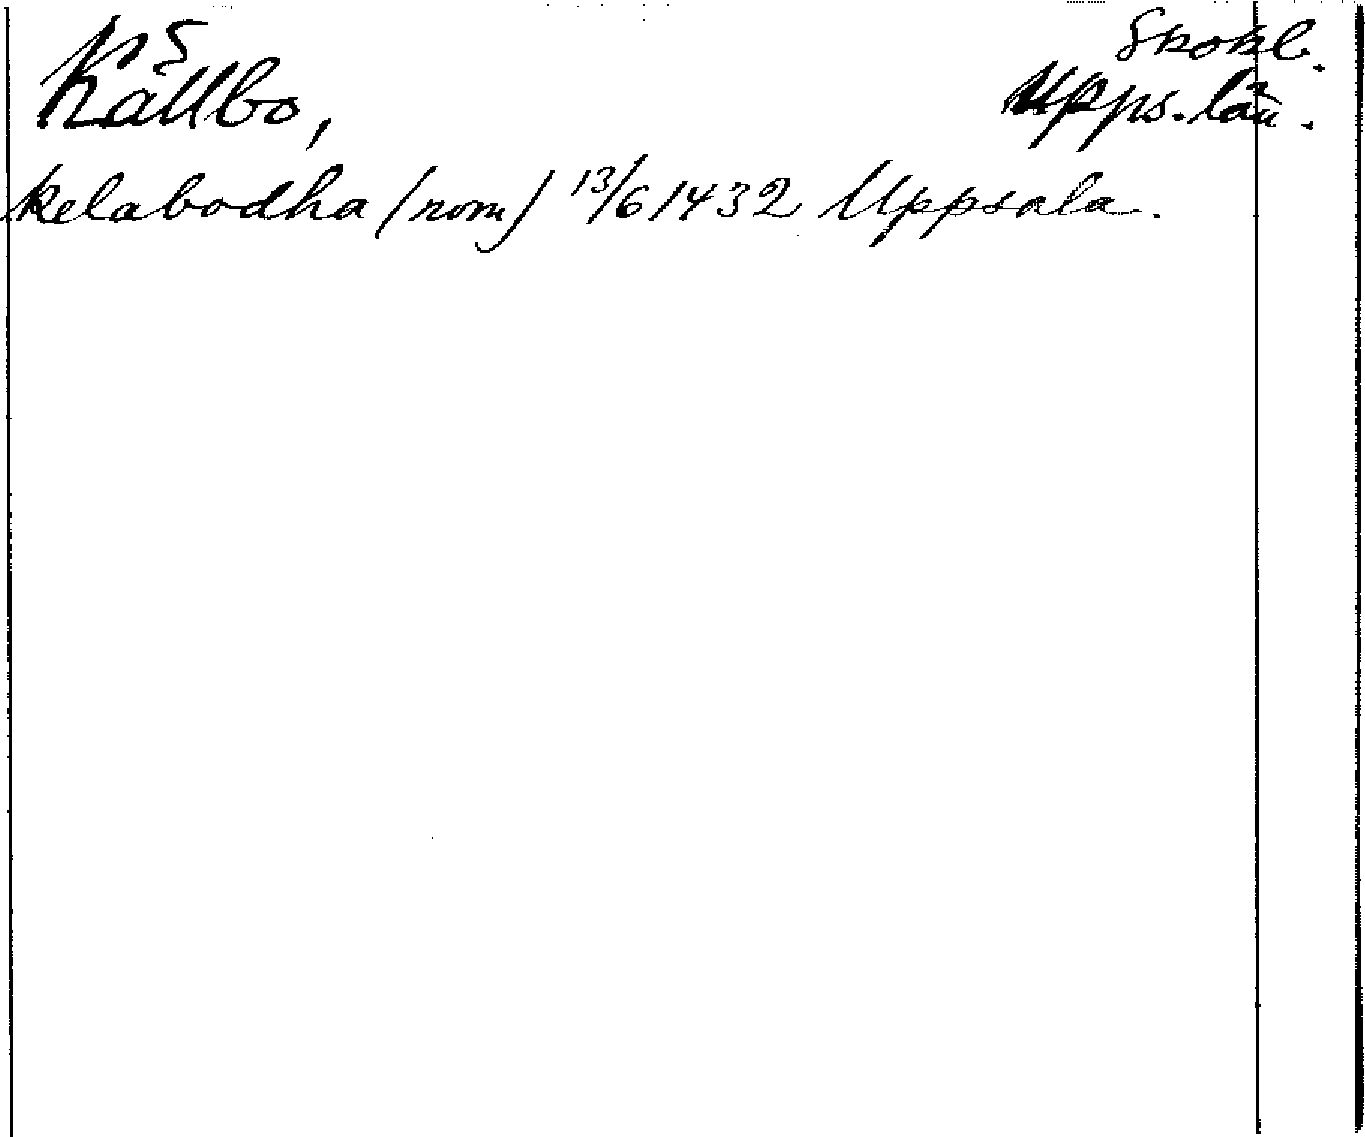 Källbo,
Skokl.
Upps. län.
kelabodha (nom) 13/6 1432 Uppsala.